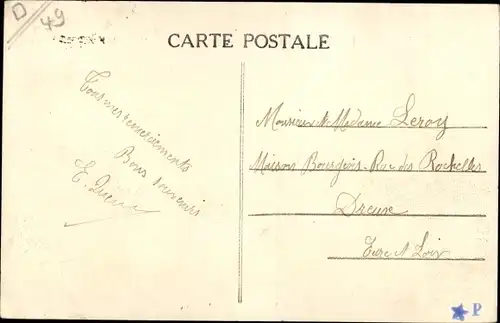 D 49
CARTE POSTALE
Tous mes remerciements
Bons souvenirs
E.
Monsieur & Madame Leroy
Maison Bourgeois. Rue des Rochelles
Dreux
Eure & Loir
P